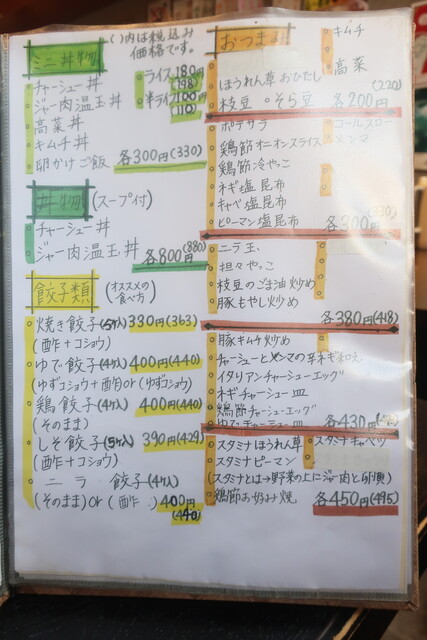 ミニ丼物
( )内は税込み
価格です。
チャーシュー丼
ジャー肉温玉丼
高菜丼
キムチ丼
卵かけご飯
各300円(330)
ライス180円
(198)
半ライス100円
(110)
丼物(スープ付)
チャーシュー丼
ジャー肉温玉丼
各800円(880)
餃子類(オススメの
食べ方)
焼き餃子(5ヶ入)330円(363)
(酢+コショウ)
ゆで餃子(4ヶ入)400円(440)
(ゆずコショウ+酢)or(ゆずコショウ)
鶏餃子(4ヶ入)400円(440)
(そのまま)
しそ餃子(5ヶ入)390円(429)
(酢+コショウ)
ニラ餃子(4ヶ入)
(そのまま)or(酢)400円
(440)
おつまみ
キムチ
高菜
ほうれん草おひたし
枝豆 そら豆
(220)
各200円
ポテサラ
コールスロー
鶏節オニオンスライス
メンマ
鶏節冷やっこ
ネギ塩昆布
キャベ塩昆布
ピーマン塩昆布
各300円
ニラ玉
担々やっこ
枝豆のごま油炒め
豚もやし炒め
各380円(418)
豚キムチ炒め
チャーシューとメンマの辛ネギ和え
イタリアンチャーシューエッグ
ネギチャーシュー皿
鶏節チャーシューエッグ
ゆでチャーシュー皿
各430円
スタミナほうれん草
スタミナキャベツ
スタミナピーマン
(スタミナとは→野菜の上にジャー肉と卵黄)
鶏節お好み焼
各450円(495)